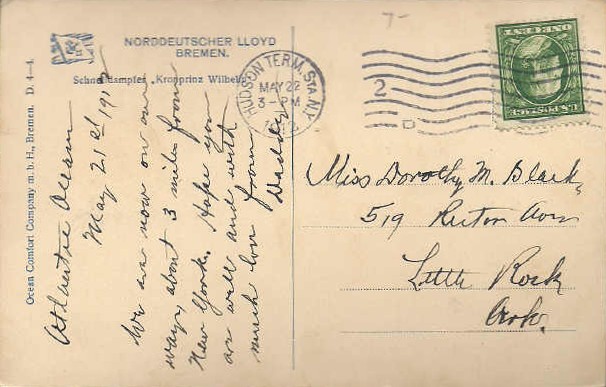 NORDDEUTSCHER LLOYD
BREMEN.
Schnelldampfer „Kronprinz Wilhelm"
Ocean Comfort Company m. b. H., Bremen. D. 4—4.
HUDSON TERM. STA. N.Y.
MAY 22
3 - PM
2
D
7-
Atlantic Ocean
May 21st
We are now on our
way, about 3 miles from
New York. Hope you
are well and with
much love from
Daddy
Miss Dorothy M. Black,
519 Ave
Little Rock
Ark.